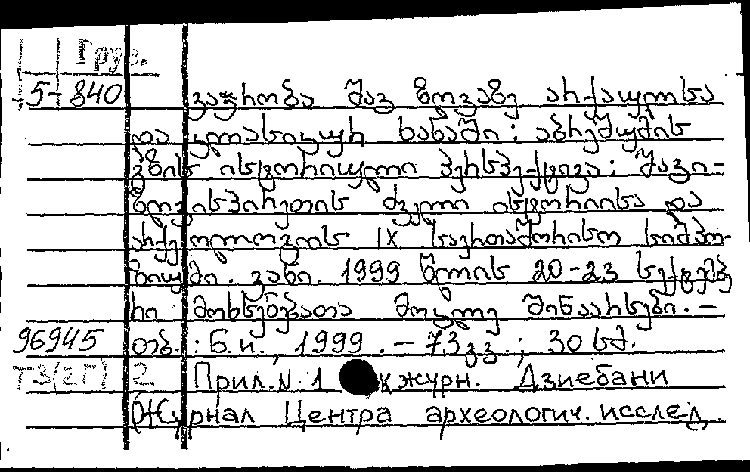 Груз.
5-840 ვაჭრობა შავ ზღვაზე არქაულსა
და კლასიკურ ხანაში : აბრეშუმის
გზის ისტორიული პერსპექტივა : შავი-
ზღვისპირეთის ძველი ისტორიისა და
არქეოლოგიის IX საერთაშორისო სიმპო-
ზიუმი. ვანი. 1999 წლის 20-23 სექტემბ
რი მოხსენებათა მოკლე შინაარსები. –
96945 თბ. : Б.и, 1999. – 73 გვ. ; 30 სმ.
ТЗ(2Г) 2 Прил. N. 1 к журн. Дзиебани
(Журнал Центра археологич. исслед.